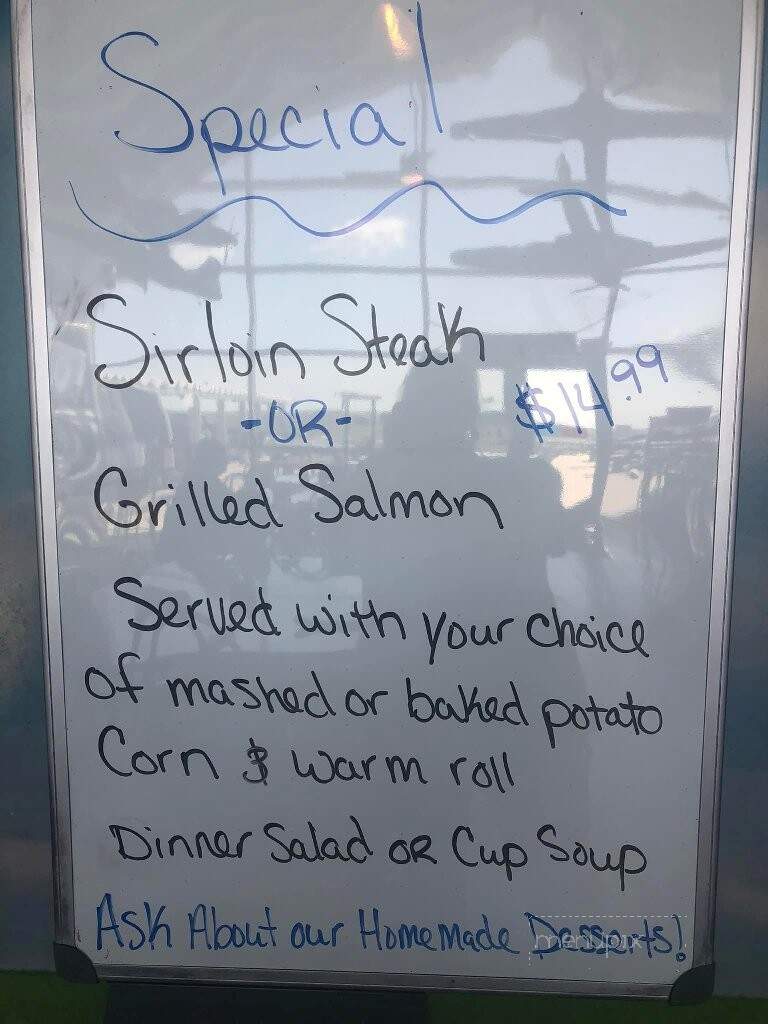 Special
Sirloin Steak
-OR-
$14.99
Grilled Salmon
Served with your choice
of mashed or baked potato
Corn & warm roll
Dinner Salad OR Cup Soup
Ask About our Homemade Desserts!
menupix